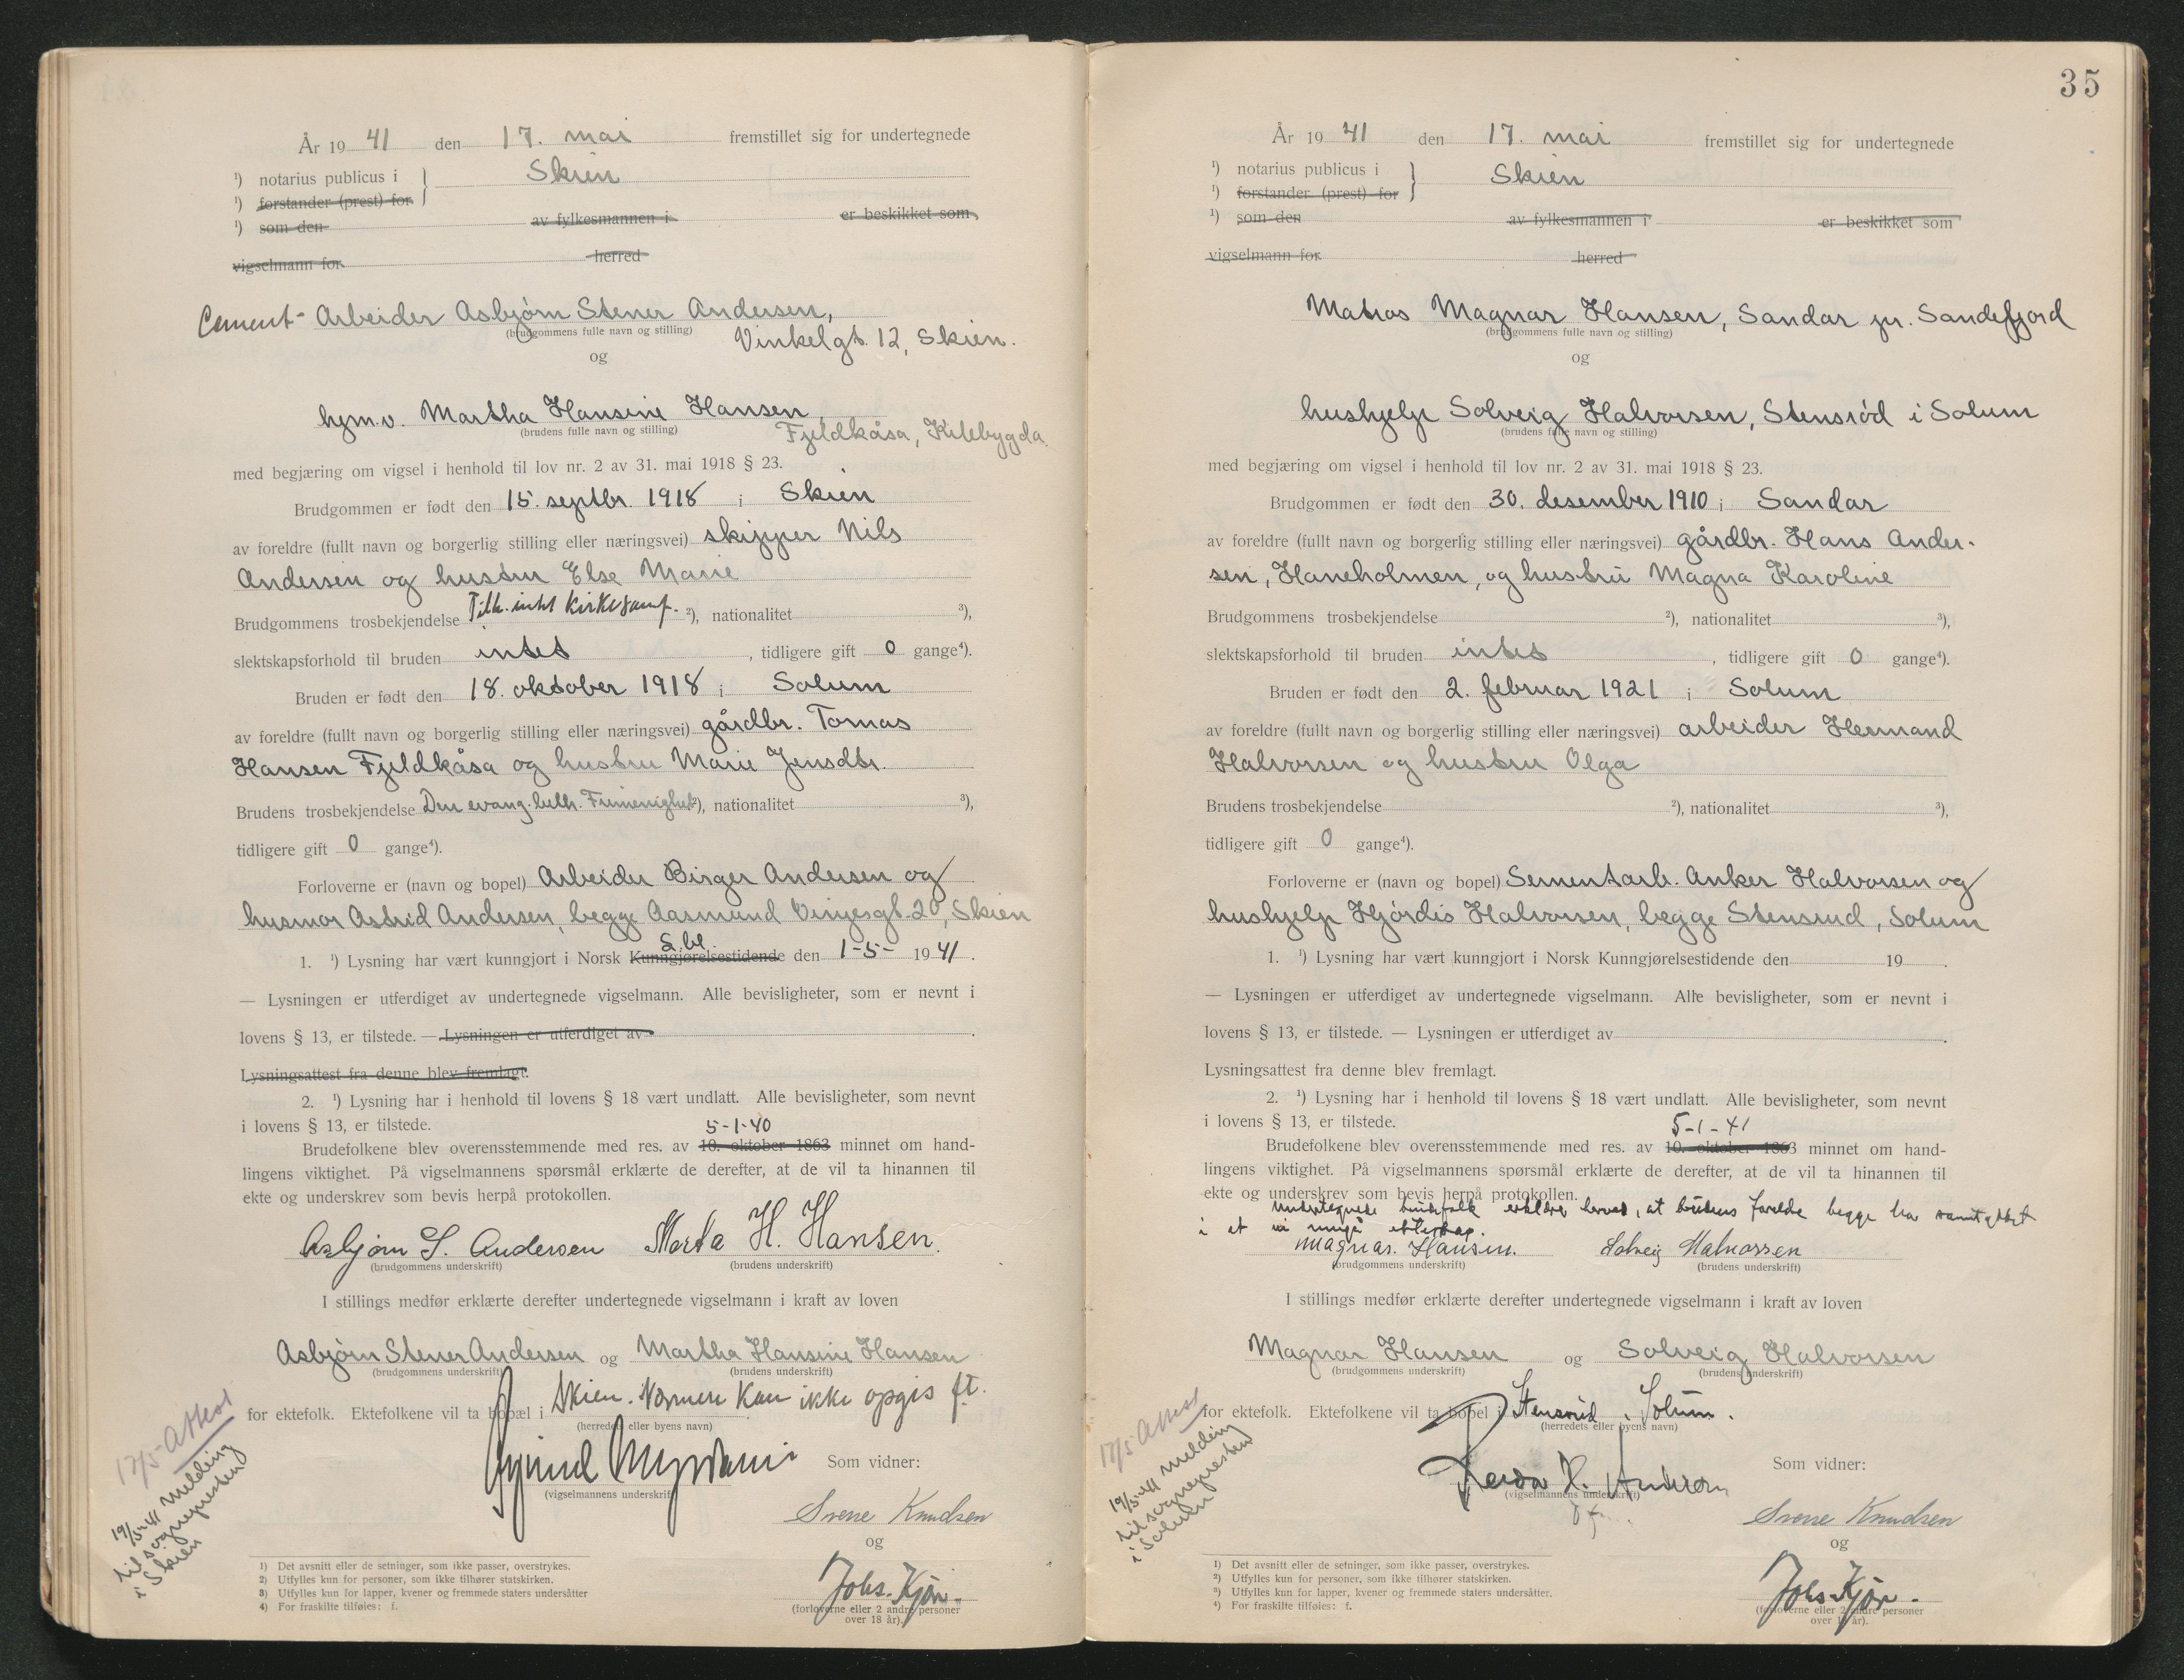 År 19 41 den 17. mai fremstillet sig for undertegnede
¹) notarius publicus i } Skien
¹) forstander (prest) for
¹) som den av fylkesmannen i er beskikket som
vigselmann for herred
Cement- Arbeider Asbjørn Stener Andersen,
(brudgommens fulle navn og stilling) Vinkelgt. 12, Skien.
og
hjm.v. Martha Hansine Hansen,
(brudens fulle navn og stilling) Fjeldkåsa, Kilebygda.
med begjæring om vigsel i henhold til lov nr. 2 av 31. mai 1918 § 23.
Brudgommen er født den 15. septbr. 1918 i Skien
av foreldre (fullt navn og borgerlig stilling eller næringsvei) skipper Nils
Andersen og hustru Else Marie
Brudgommens trosbekjendelse Tilh. intet kirkesamf. ²), nationalitet ³),
slektskapsforhold til bruden intet, tidligere gift 0 gange⁴).
Bruden er født den 18. oktober 1918 i Solum
av foreldre (fullt navn og borgerlig stilling eller næringsvei) gårdbr. Tomas
Hansen Fjeldkåsa og hustru Marie Jensdtr.
Brudens trosbekjendelse Den evang. luth. Frimenighet ²), nationalitet ³),
tidligere gift 0 gange⁴).
Forloverne er (navn og bopel) Arbeider Birger Andersen og
husmor Astrid Andersen, begge Aasmund Vinjesgt. 20, Skien
S. bl.
1. ¹) Lysning har vært kunngjort i Norsk Kunngjørelsestidende den 1-5- 19 41.
— Lysningen er utferdiget av undertegnede vigselmann. Alle bevisligheter, som er nevnt i
lovens § 13, er tilstede. — Lysningen er utferdiget av
Lysningsattest fra denne blev fremlagt.
2. ¹) Lysning har i henhold til lovens § 18 vært undlatt. Alle bevisligheter, som nevnt
i lovens § 13, er tilstede. 5-1-40
Brudefolkene blev overensstemmende med res. av 10. oktober 1863 minnet om hand-
lingens viktighet. På vigselmannens spørsmål erklærte de derefter, at de vil ta hinannen til
ekte og underskrev som bevis herpå protokollen.
Asbjørn S. Andersen Marta H. Hansen.
(brudgommens underskrift) (brudens underskrift)
I stillings medfør erklærte derefter undertegnede vigselmann i kraft av loven
Asbjørn Stener Andersen og Martha Hansine Hansen
(brudgommens underskrift) (brudens underskrift)
for ektefolk. Ektefolkene vil ta bopæl i Skien. Nærmere kan ikke opgis ft.
(herredets eller byens navn)
Som vidner:
(vigselmannens underskrift)
Sverre Knudsen
og
Johs. Kjør.
(forloverne eller 2 andre personer
over 18 år).
17/5 Attest
19/5-41 melding
til sognepresten
i Skien
1) Det avsnitt eller de setninger, som ikke passer, overstrykes.
2) Utfylles kun for personer, som ikke tilhører statskirken.
3) Utfylles kun for lapper, kvener og fremmede staters undersåtter
4) For fraskilte tilføies: f.
35
År 19 41 den 17. mai fremstillet sig for undertegnede
¹) notarius publicus i } Skien
¹) forstander (prest) for
¹) som den av fylkesmannen i er beskikket som
vigselmann for herred
Matros Magnar Hansen, Sandar pr. Sandefjord
(brudgommens fulle navn og stilling)
og
hushjelp Solveig Halvorsen, Stensrød i Solum
(brudens fulle navn og stilling)
med begjæring om vigsel i henhold til lov nr. 2 av 31. mai 1918 § 23.
Brudgommen er født den 30. desember 1910 i Sandar
av foreldre (fullt navn og borgerlig stilling eller næringsvei) gårdbr. Hans Ander-
sen, Haneholmen, og hustru Magna Karoline
Brudgommens trosbekjendelse ²), nationalitet ³),
slektskapsforhold til bruden intet, tidligere gift 0 gange⁴).
Bruden er født den 2. februar 1921 i Solum
av foreldre (fullt navn og borgerlig stilling eller næringsvei) arbeider Hermand
Halvorsen og hustru Olga
Brudens trosbekjendelse ²), nationalitet ³),
tidligere gift 0 gange⁴).
Forloverne er (navn og bopel) Sementarb. Anker Halvorsen og
hushjelp Hjørdis Halvorsen, begge Stensrud, Solum
1. ¹) Lysning har vært kunngjort i Norsk Kunngjørelsestidende den 19 .
— Lysningen er utferdiget av undertegnede vigselmann. Alle bevisligheter, som er nevnt i
lovens § 13, er tilstede. — Lysningen er utferdiget av .
Lysningsattest fra denne blev fremlagt.
2. ¹) Lysning har i henhold til lovens § 18 vært undlatt. Alle bevisligheter, som nevnt
i lovens § 13, er tilstede. 5-1-41
Brudefolkene blev overensstemmende med res. av 10. oktober 1863 minnet om hand-
lingens viktighet. På vigselmannens spørsmål erklærte de derefter, at de vil ta hinannen til
ekte og underskrev som bevis herpå protokollen.
Undertegnede brudefolk erklærer herved, at brudens foreldre begge har samtykket
i at vi inngå ekteskap.
Magnar. Hansen. Solveig Halvorsen
(brudgommens underskrift) (brudens underskrift)
I stillings medfør erklærte derefter undertegnede vigselmann i kraft av loven
Magnar Hansen og Solveig Halvorsen
(brudgommens underskrift) (brudens underskrift)
for ektefolk. Ektefolkene vil ta bopel i Stensrud i Solum.
(herredets eller byens navn)
Som vidner:
(vigselmannens underskrift)
Sverre Knudsen
og
Johs. Kjør.
(forloverne eller 2 andre personer
over 18 år).
17/5 Attest
19/5-41 melding
til sognepresten
i Solum
1) Det avsnitt eller de setninger, som ikke passer, overstrykes.
2) Utfylles kun for personer, som ikke tilhører statskirken.
3) Utfylles kun for lapper, kvener og fremmede staters undersåtter.
4) For fraskilte tilføies: f.